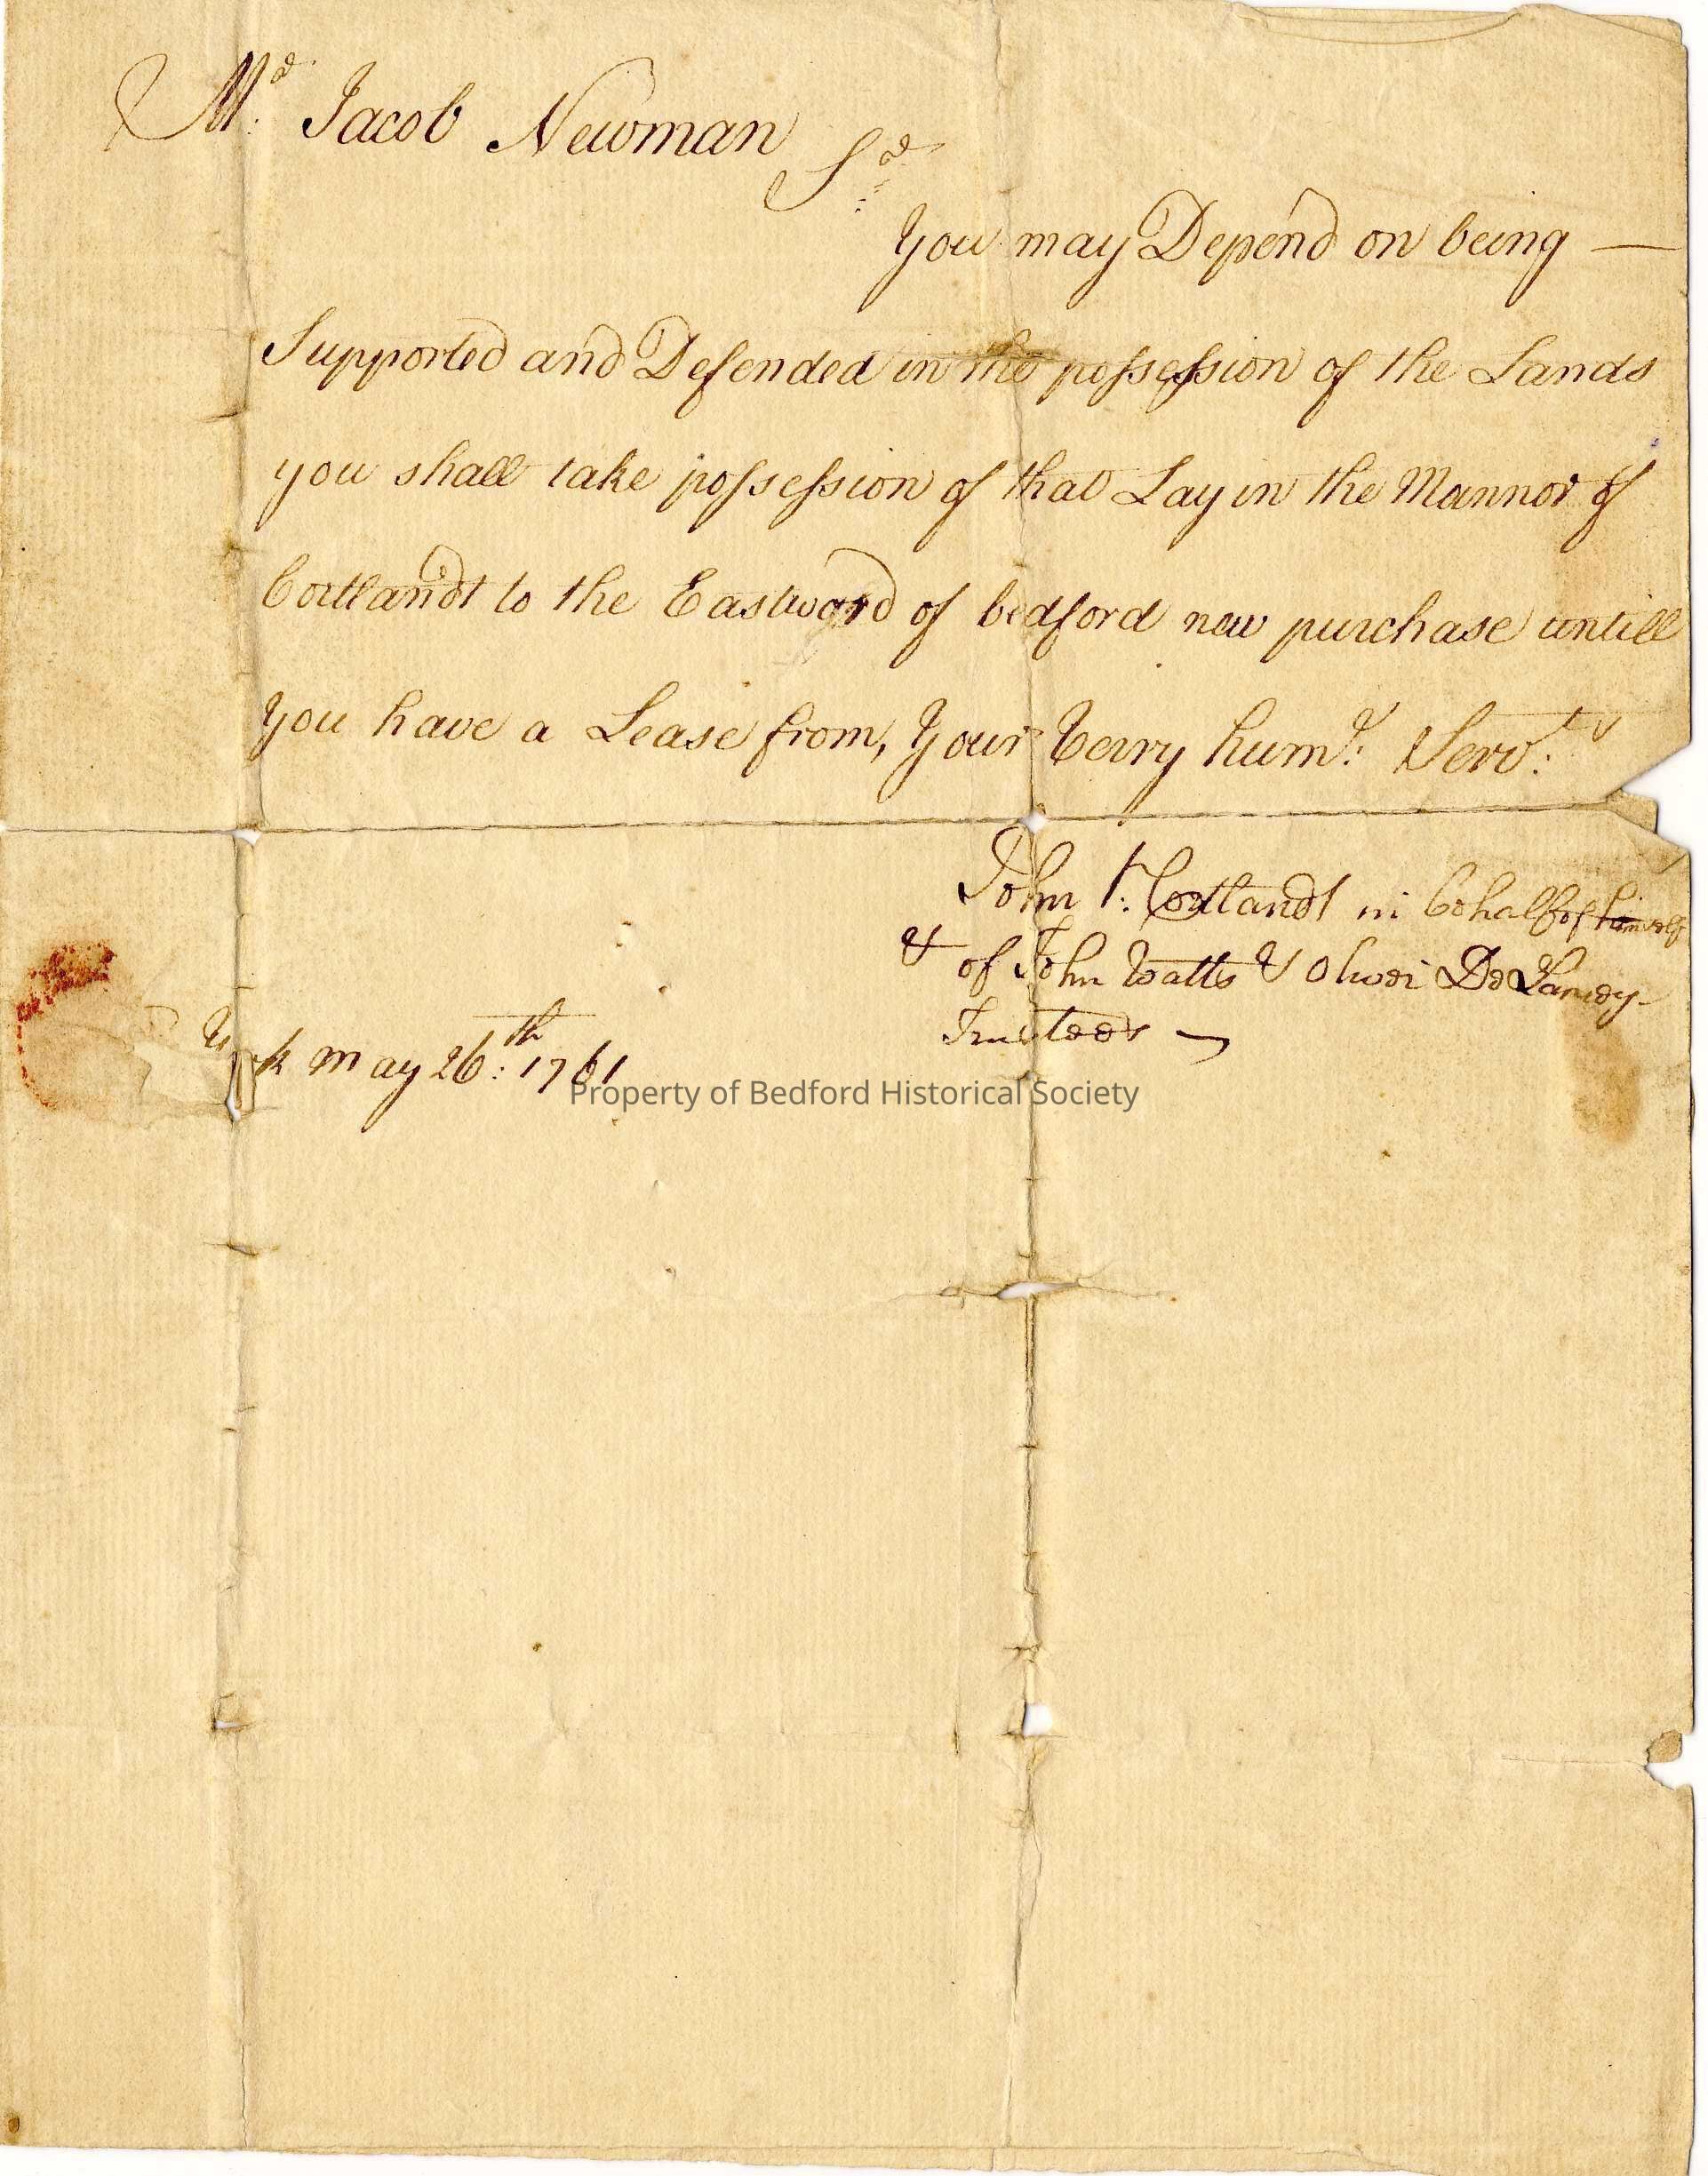 Mr. Jacob Newman
Sr.
You may Depend on being —
Supported and Defended in the possession of the Lands
you shall take possession of that Lay in the Mannor of
Cortlandt to the Eastward of bedford new purchase untill
you have a Lease from, Your Verry humle. Servt.
John V. Cortlandt in behalf of himself
& of John Watts & Oliver De Lancey
Trustees —
York may 26th: 1761
Property of Bedford Historical Society